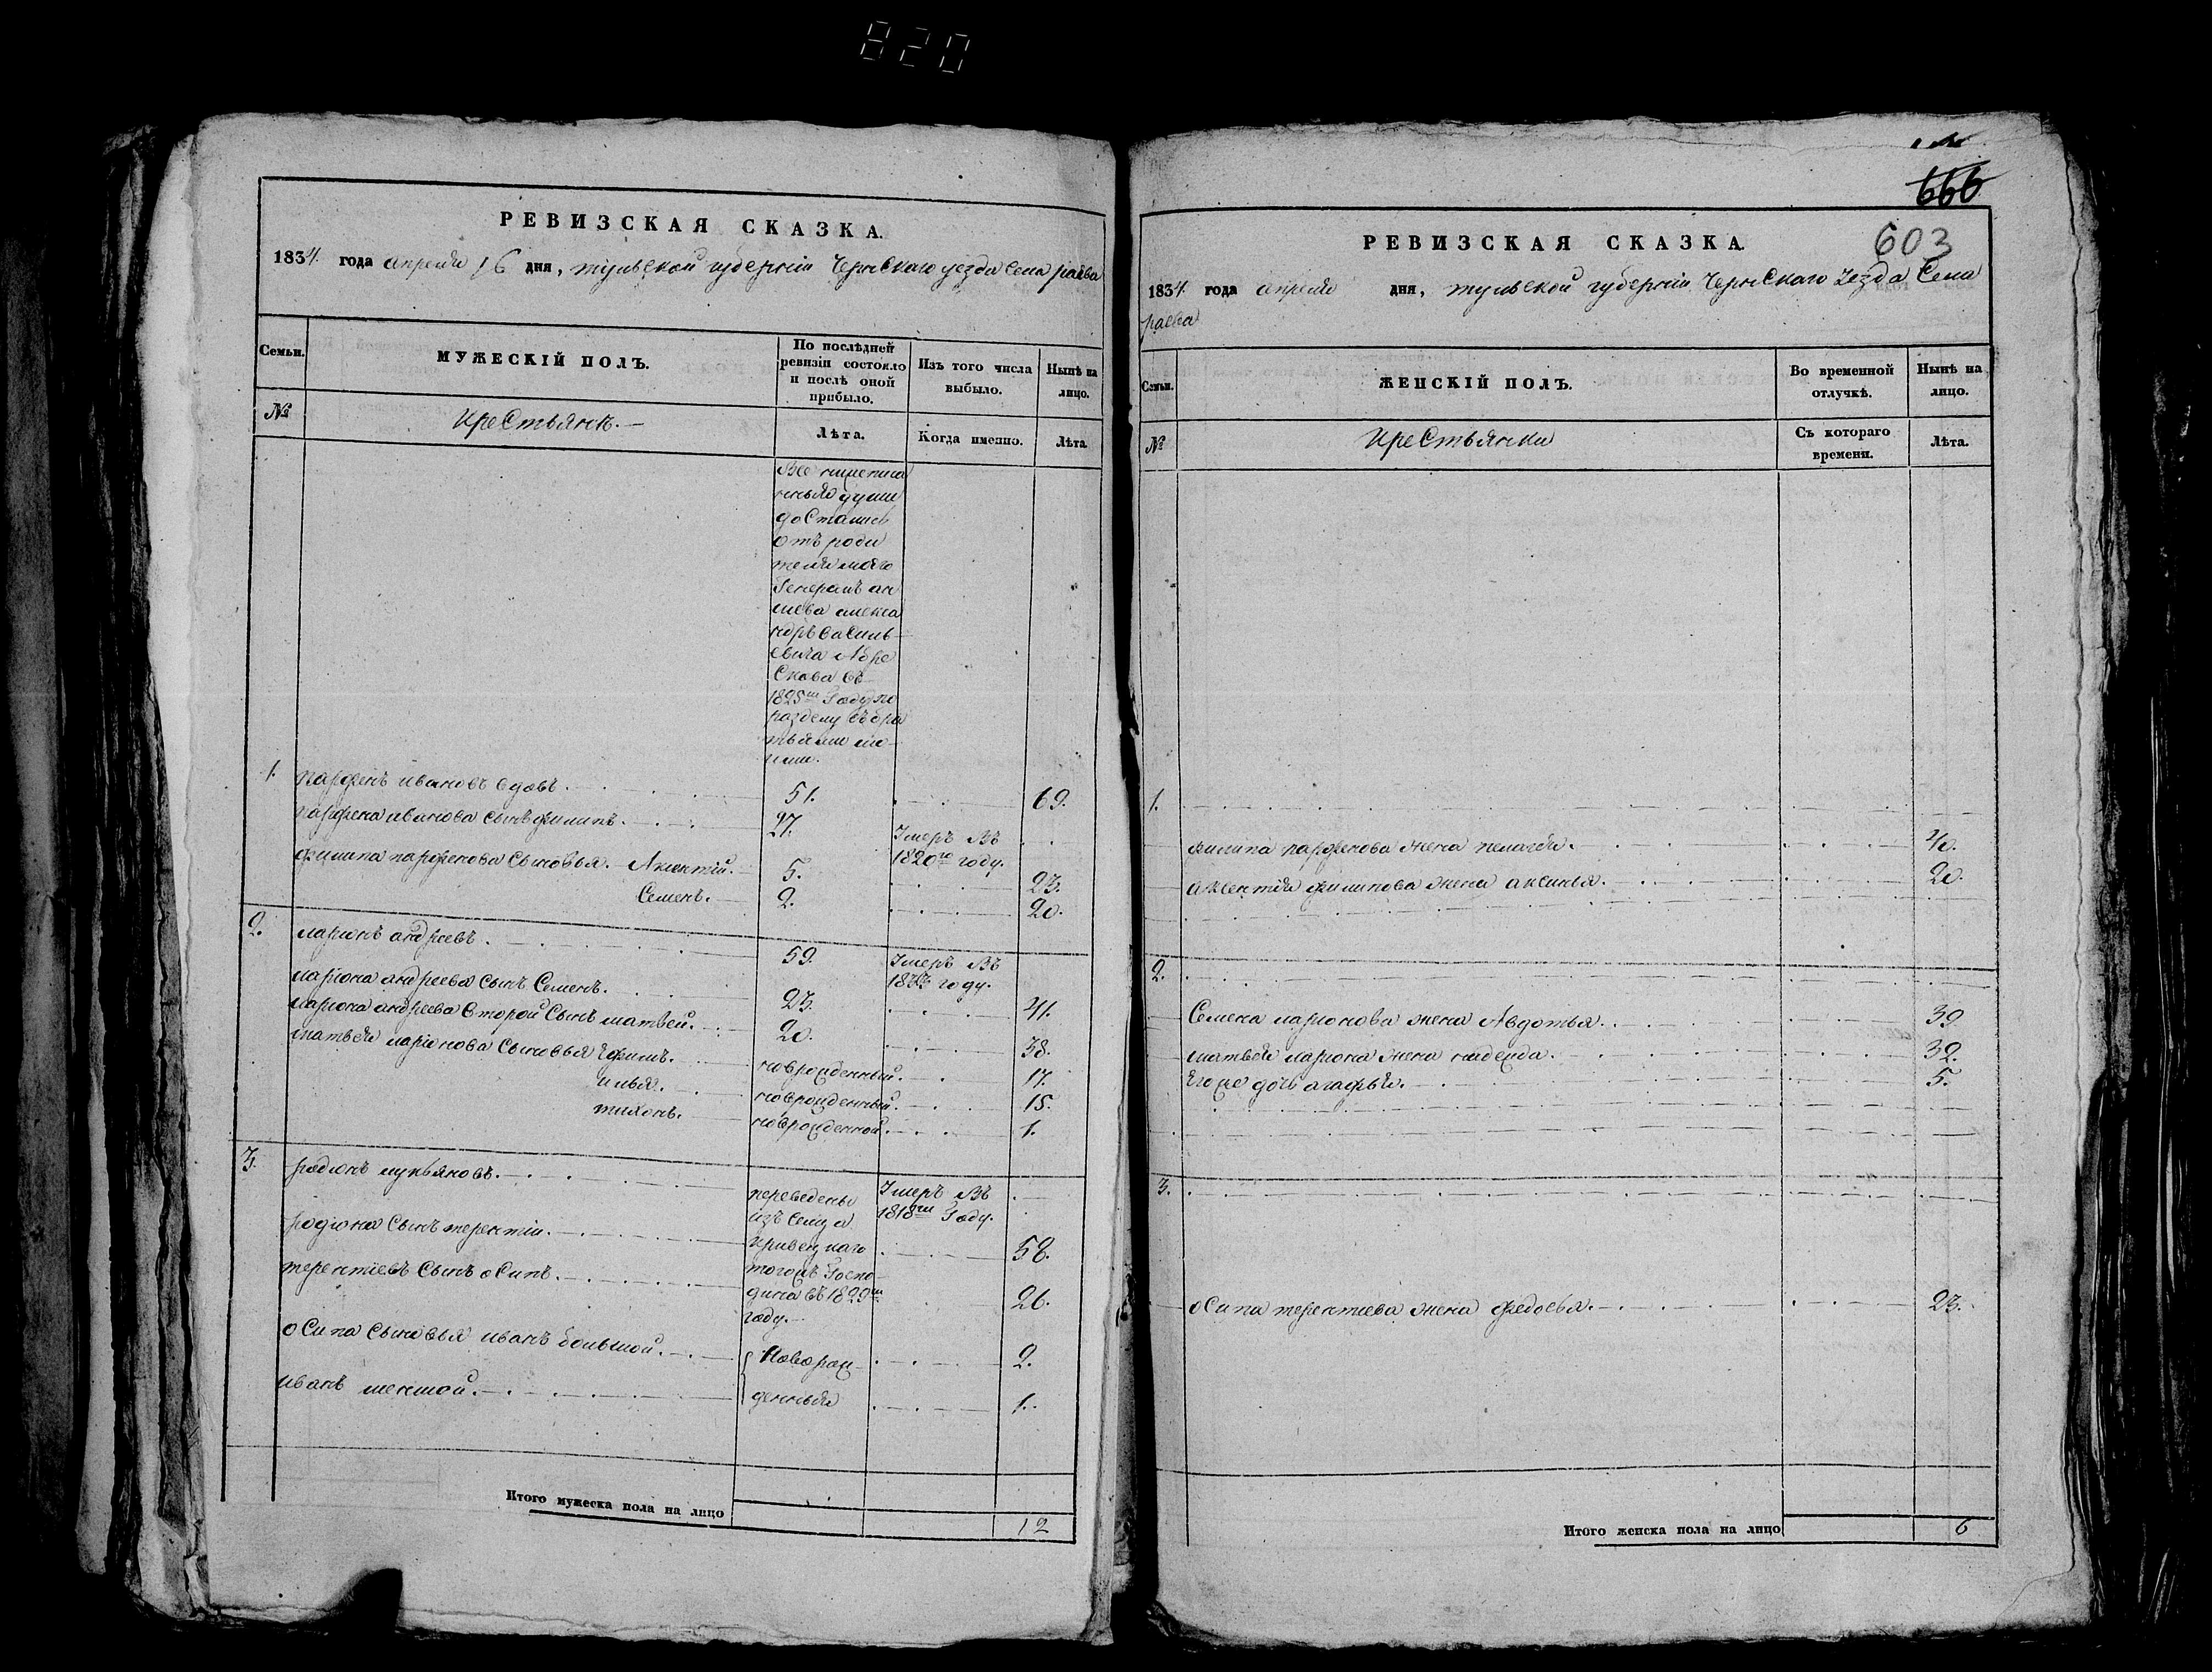 820
РЕВИЗСКАЯ СКАЗКА.
1834 года апреля 16 дня, тульской губерніи Чернскаго уезда села раева
Семьи.
МУЖЕСКІЙ ПОЛЪ.
По послѣдней ревизіи состояло и послѣ оной прибыло.
Изъ того числа выбыло.
Нынѣ на лицо.
№
Крестьянъ.
Лѣта.
Когда именно.
Лѣта
Все
души
достались
отъ роди
теля моего
Генералъ
алекса
ндръ василь
евича Абре
скова въ
1825м Году по
разделу съ бра
тьями мо
ими.
1. парфенъ ивановъ вдовъ. 51. 69.
парфена иванова сынъ филипъ. 27. Умеръ Въ 1820го году.
филипа парфенова сыновья. Аксентій. 5. 23.
Семенъ. 2. 20.
2. ларіонъ андреевъ. 59. Умеръ Въ году.
ларіона андреева сынъ Семенъ. 23. 41.
ларіона андреева второй сынъ матвей. 20. 38.
матвея ларіонова сыновья Ефимъ. новрожденный. 17.
илья. новрожденный. 15.
тихонъ. новрожденной. 1.
3. родіонъ лукьяновъ. переведены Умеръ Въ
изъ сельца 1818м Году.
родіона сынъ терентіи. 58.
тогожъ Госпо
терентіевъ сынъ осипъ. дина въ 1829м 26.
году.
осипа сыновья иванъ большой. Новорож 2.
иванъ меншой. денныя 1.
Итого мужеска пола на лицо 12
666
603
РЕВИЗСКАЯ СКАЗКА.
1834 года апреля дня, тульской губерніи Чернскаго Уезда Села
раева
Семьи.
ЖЕНСКІЙ ПОЛЪ.
Во временной отлучкѣ.
Нынѣ на лицо.
№
Крестьянки
Съ котораго времени.
Лѣта.
1.
филипа парфенова жена пелагея. 40.
аксентія филипова жена аксинья. 20.
2.
Семена ларіонова жена Авдотья. 39
матвея ларіона жена надежда. 32.
Егоже дочь агафья. 5.
3.
осипа терентиева жена федосья. 23.
Итого женска пола на лицо 6